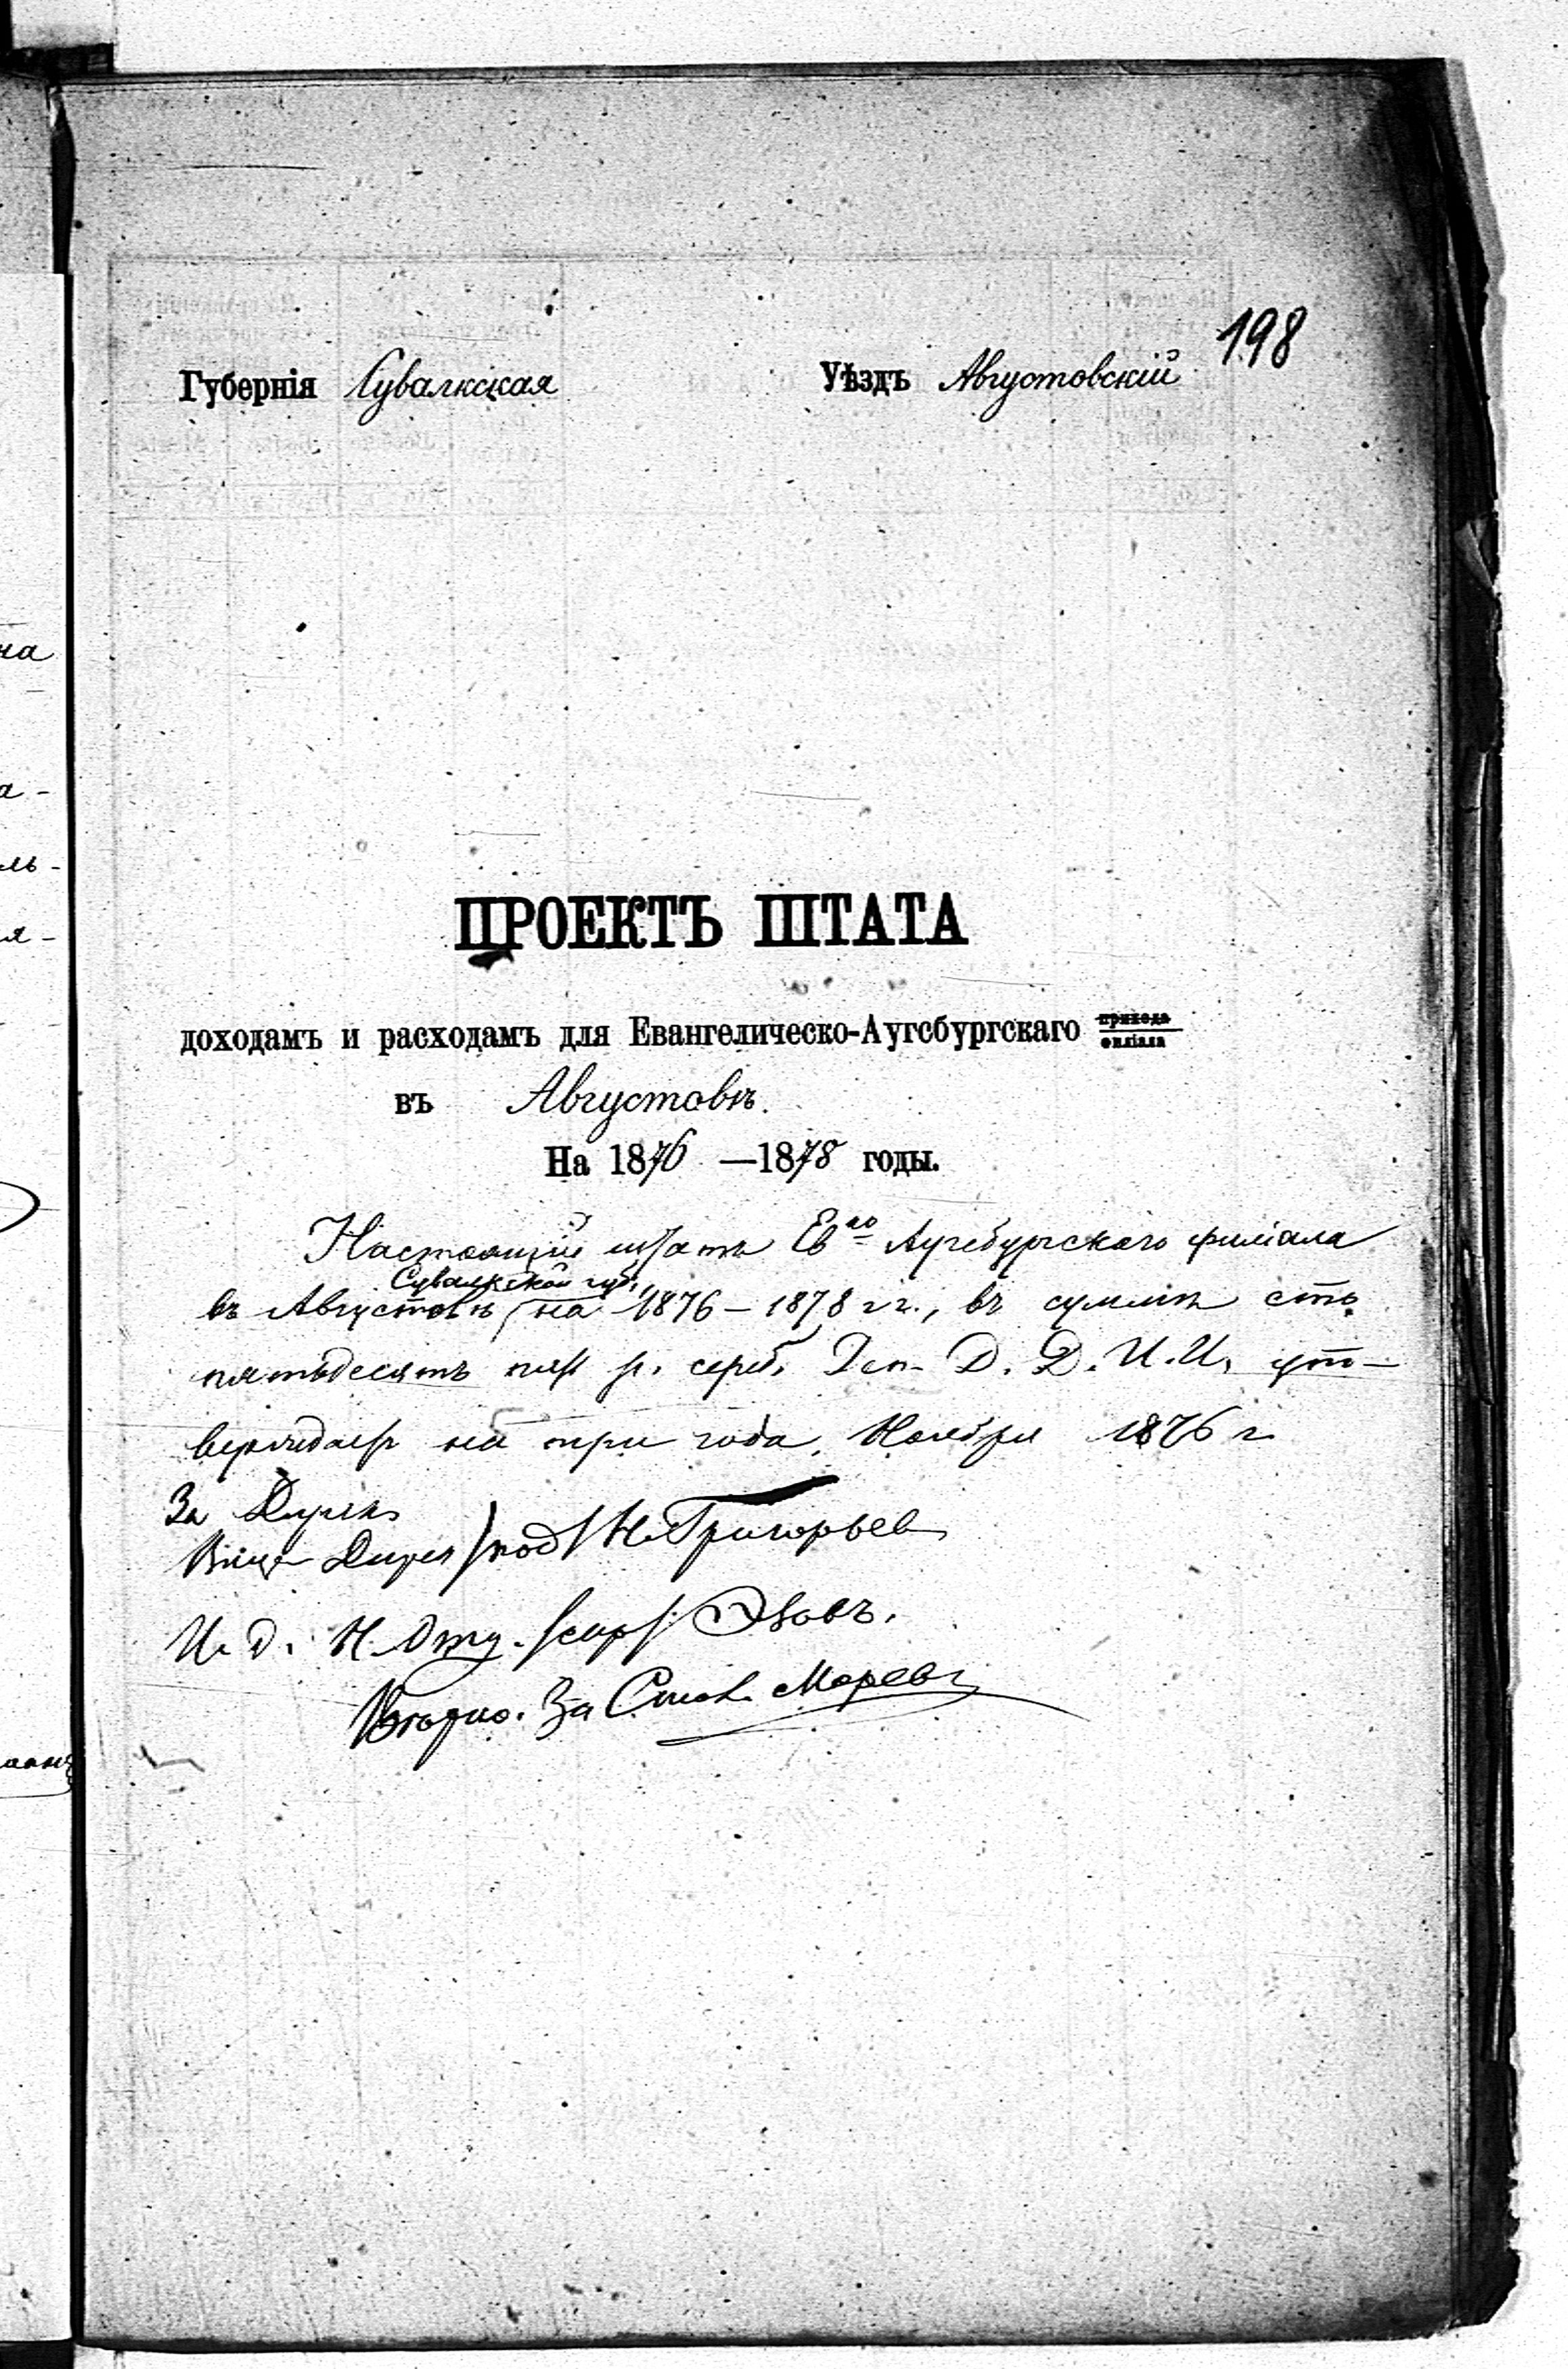 198
Губернія Сувалкская Уѣздъ Августовскій
ПРОЕКТЪ ШТАТА
доходамъ и расходамъ для Евангелическо-Аугсбургскаго прихода
филіала
въ Августовѣ.
На 1876 —1878 годы.
Настоящій штатъ Ев го Аугсбургскаго филіала
Сувалкской губ.
въ Августовѣ на 1876 – 1878 гг., въ суммѣ сто
пятьдесятъ р. сереб. Деп. Д. Д. И. И. ут–
верждаетъ на три года. Ноября 1876 г.
За Дирек.
Вице Дирек /под/ Н. Григорьев
И. д. Н. Отд. /скр/
Вѣрно. За Стол.
на
а -
ль -
я -